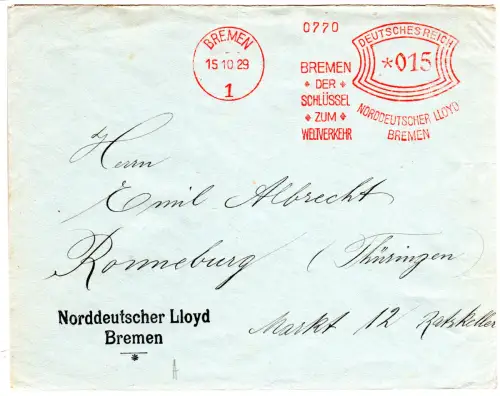 0770
BREMEN
15 10 29
1
BREMEN
DER
SCHLÜSSEL
ZUM
WELTVERKEHR
DEUTSCHES REICH
*015
NORDDEUTSCHER LLOYD
BREMEN
Herrn
Emil Albrecht
Ronneburg (Thüringen)
Markt 12 Ratskeller
Norddeutscher Lloyd
Bremen
*
A